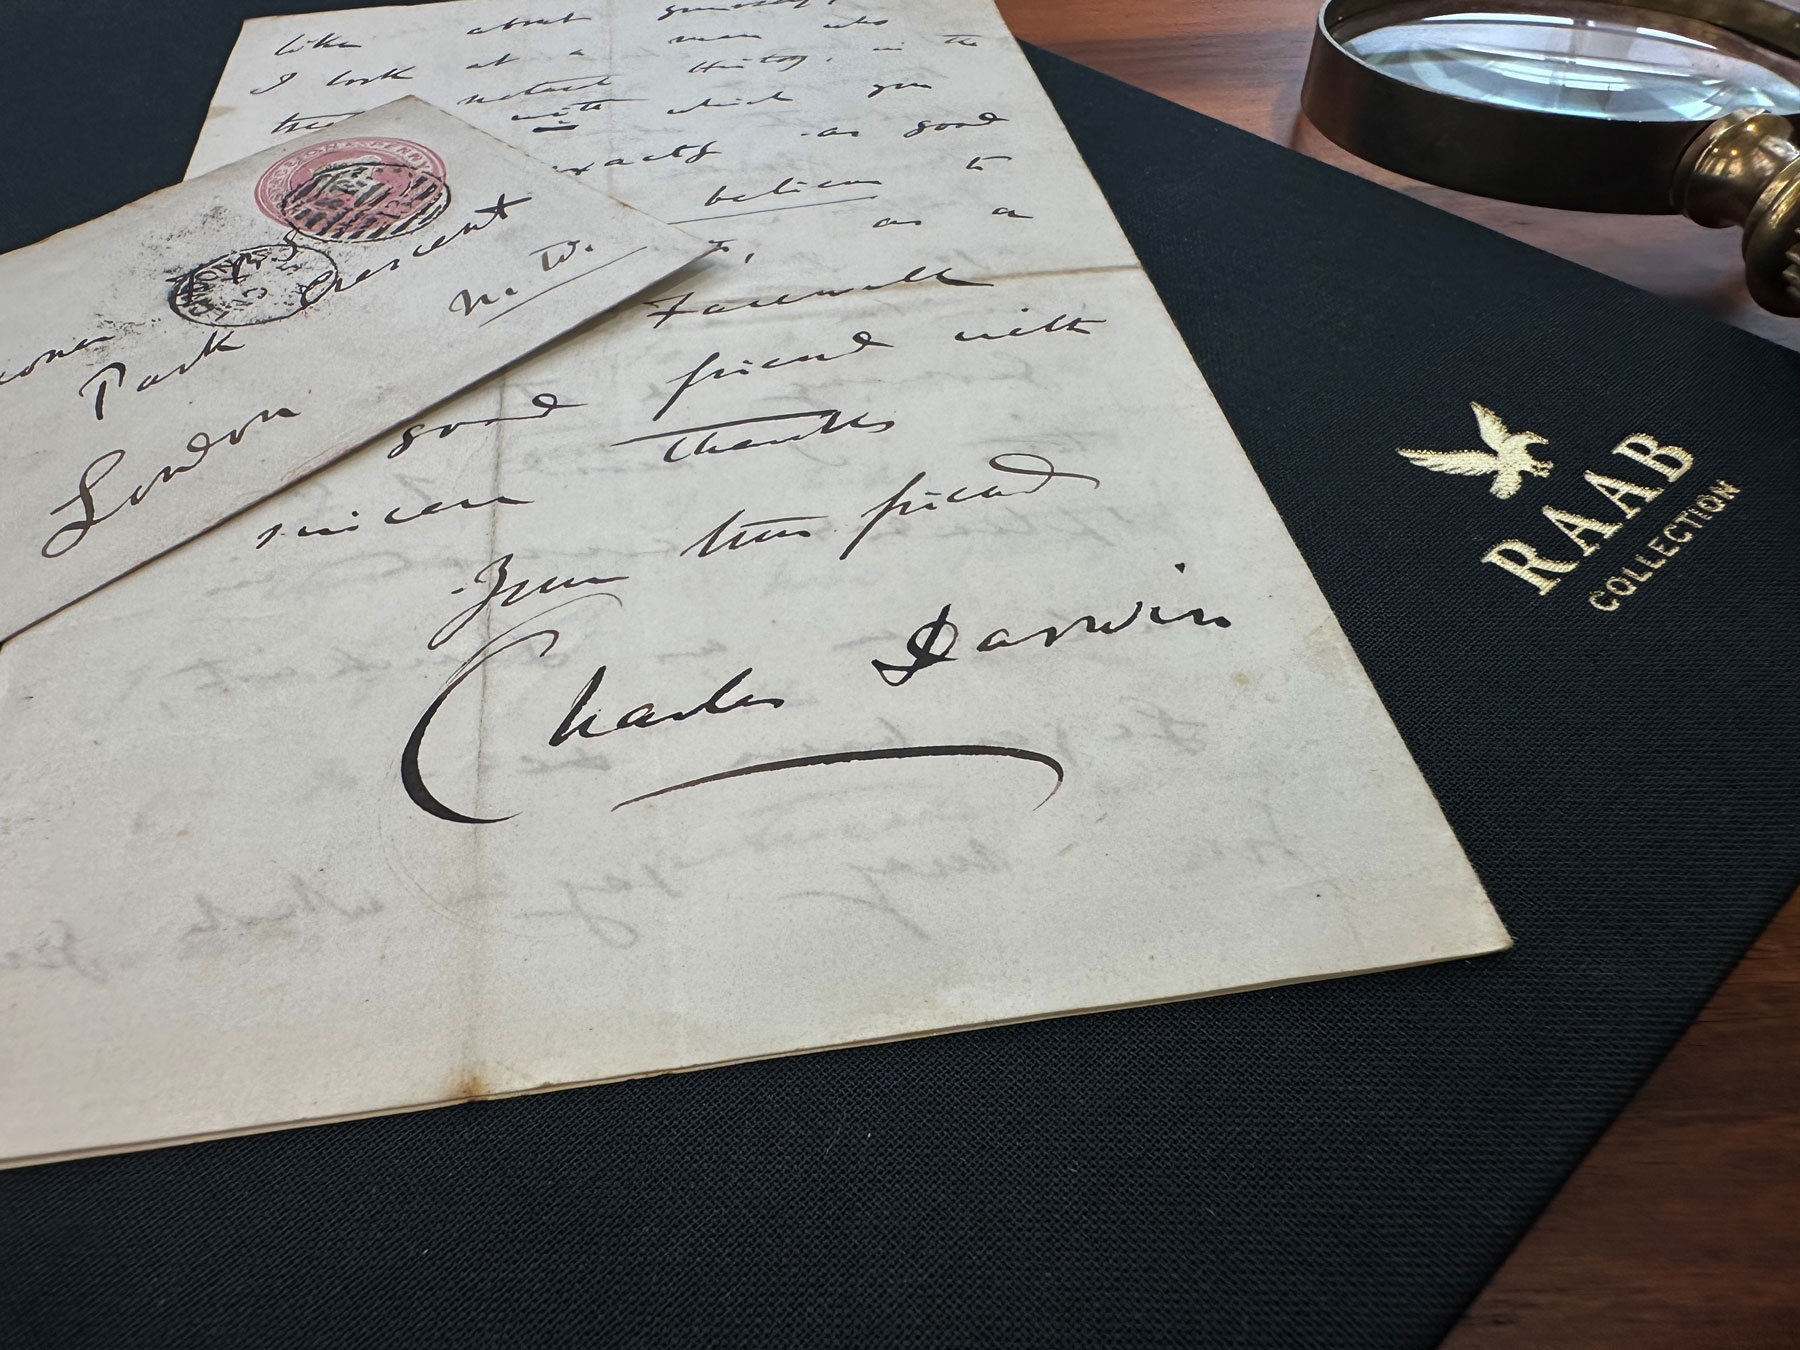 like about generosity
I look at a man who
natural History, in the
with which you
exactly as good
believe to
as a
Farewell
good friend with
sincere thanks
Your true friend
Charles Darwin
ONE PENNY
Park Crescent
London
N. W.
RAAB
COLLECTION